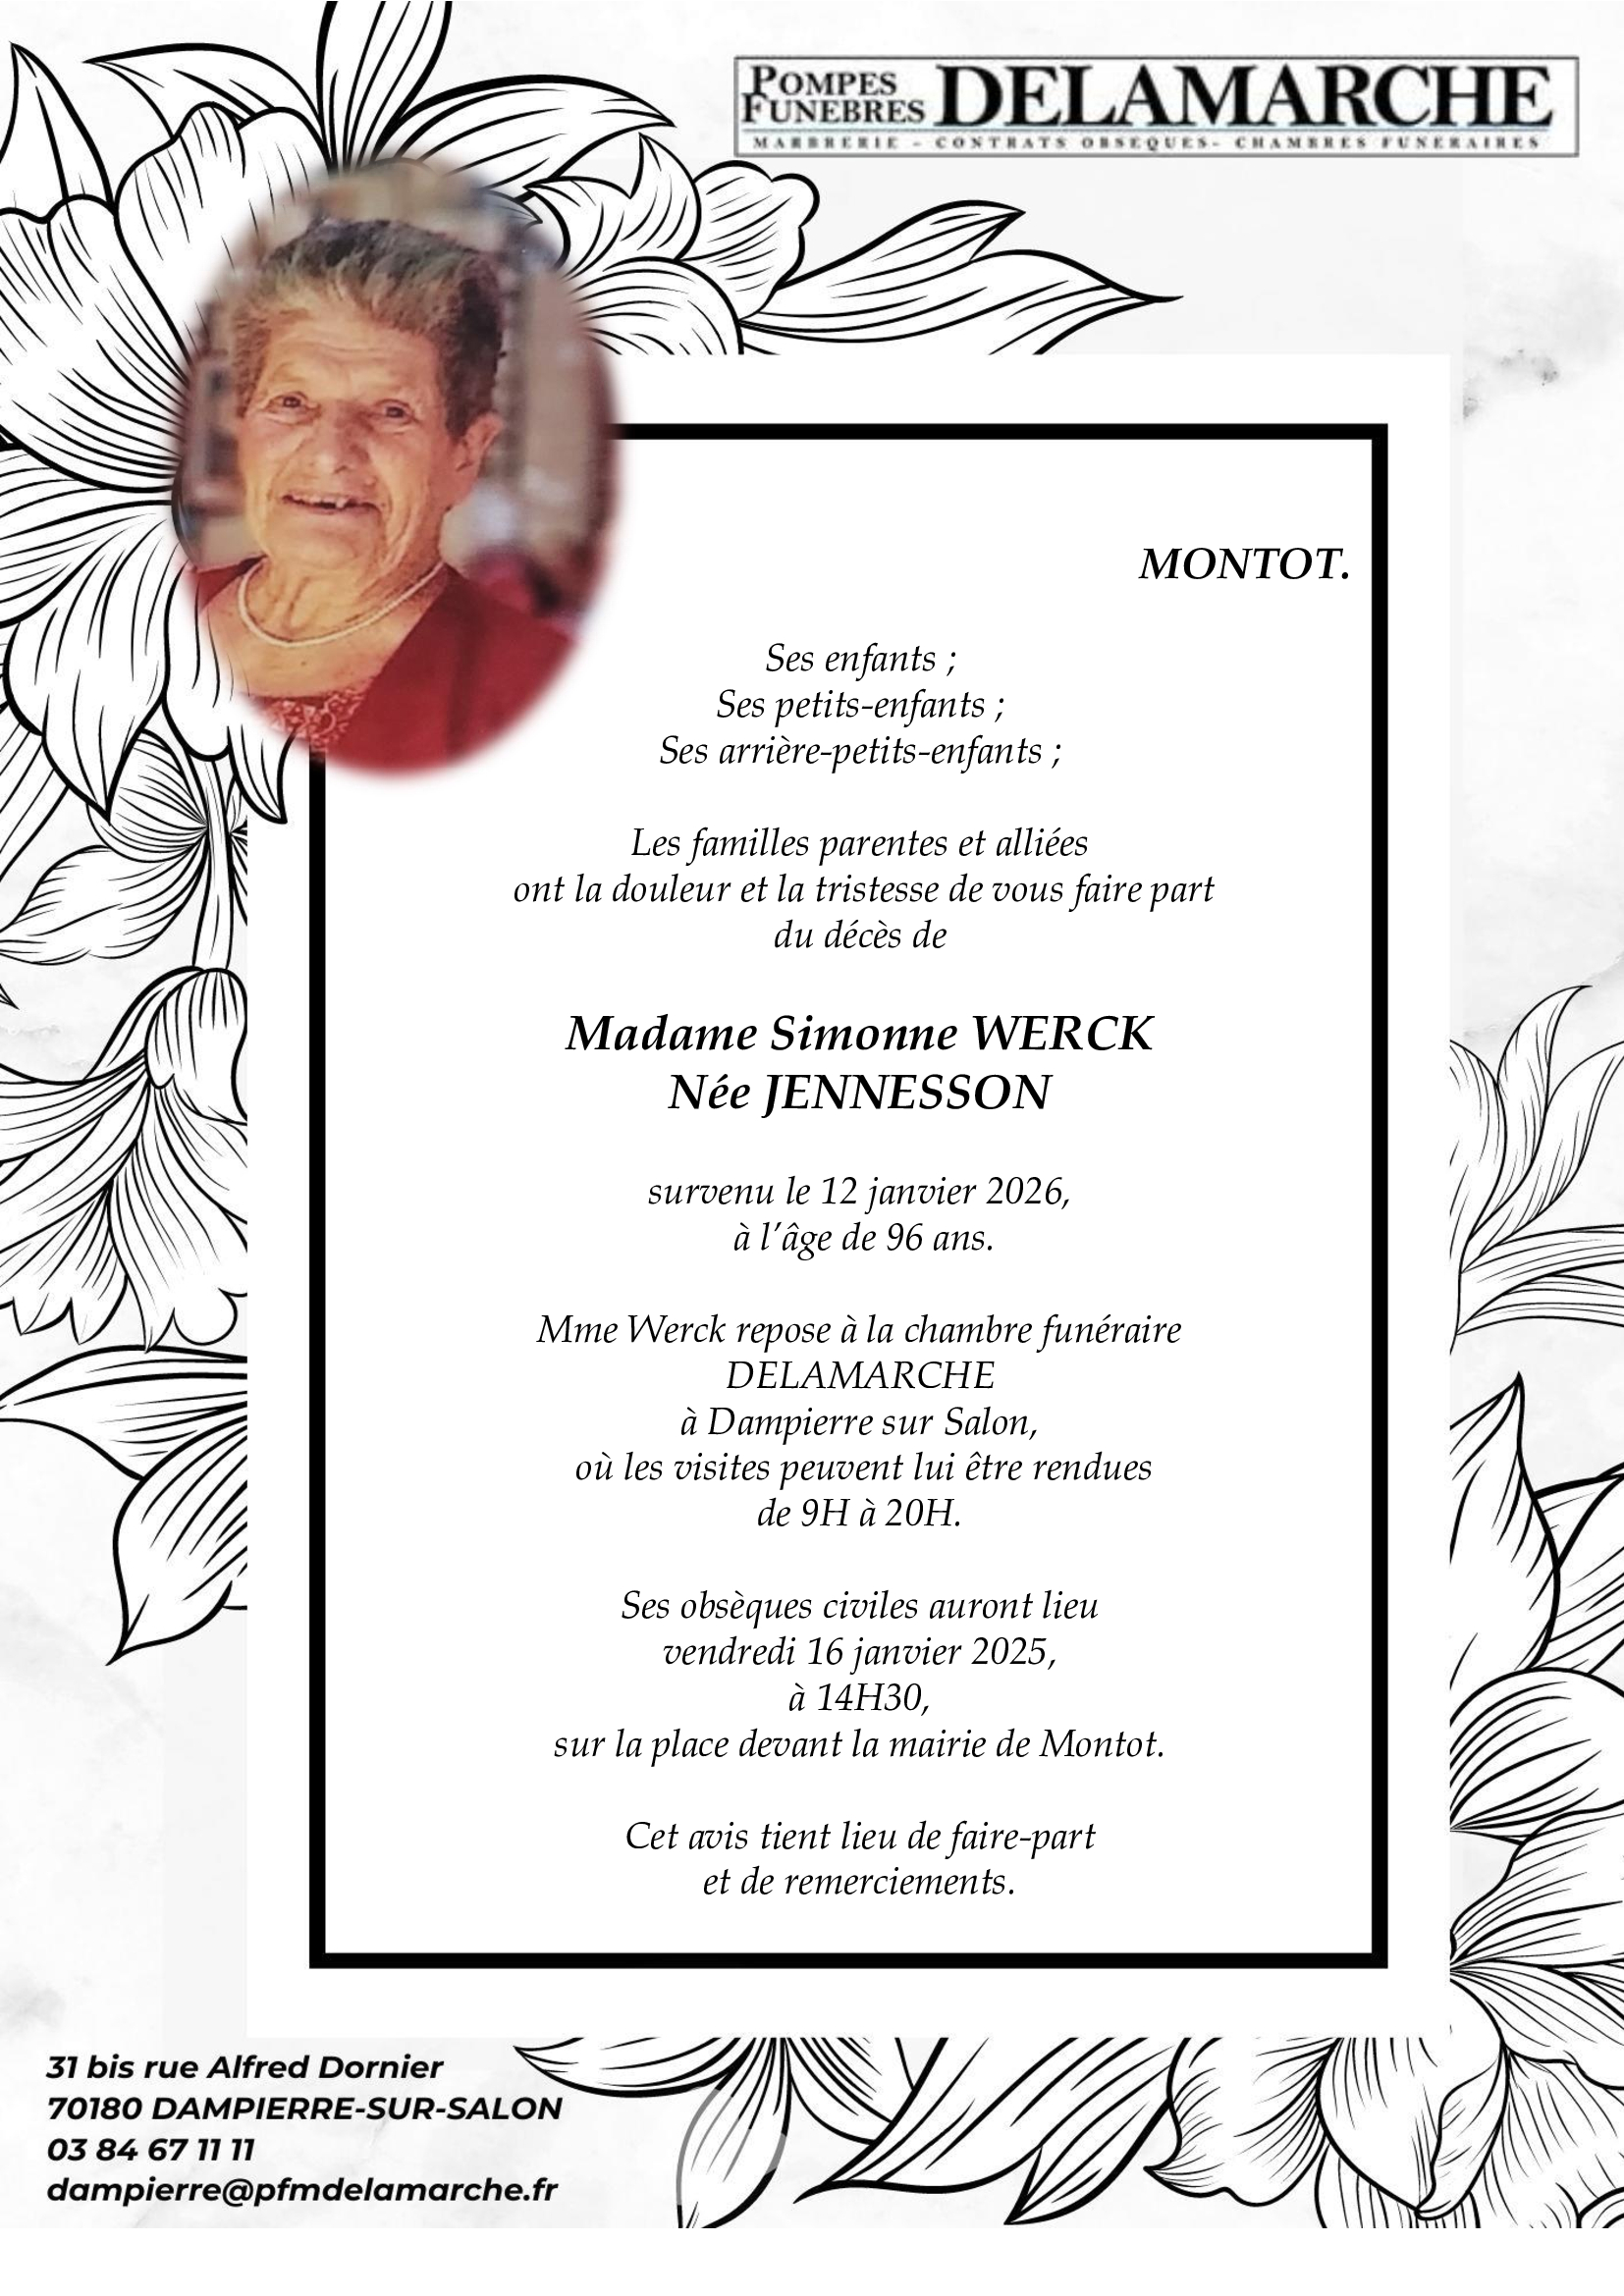 POMPES FUNEBRES DELAMARCHE
MARBRERIE - CONTRATS OBSEQUES- CHAMBRES FUNERAIRES
MONTOT.
Ses enfants ;
Ses petits-enfants ;
Ses arrière-petits-enfants ;
Les familles parentes et alliées
ont la douleur et la tristesse de vous faire part
du décès de
Madame Simonne WERCK
Née JENNESSON
survenu le 12 janvier 2026,
à l’âge de 96 ans.
Mme Werck repose à la chambre funéraire
DELAMARCHE
à Dampierre sur Salon,
où les visites peuvent lui être rendues
de 9H à 20H.
Ses obsèques civiles auront lieu
vendredi 16 janvier 2025,
à 14H30,
sur la place devant la mairie de Montot.
Cet avis tient lieu de faire-part
et de remerciements.
31 bis rue Alfred Dornier
70180 DAMPIERRE-SUR-SALON
03 84 67 11 11
dampierre@pfmdelamarche.fr